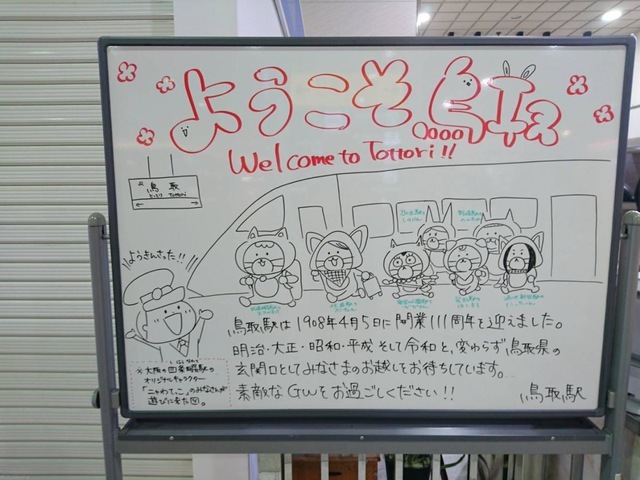 ようこそ
Welcome to Tottori!!
鳥取
とっとり Tottori
ようきんさった!!
鳥取駅は1908年4月5日に開業111周年を迎えました。
明治・大正・昭和・平成 そして令和と、変わらず鳥取県の
玄関口としてみなさまのお越しをお待ちしています。
素敵なGWをお過ごしください!!
鳥取駅
※大阪の四条畷駅の
オリジナルキャラクター
「ニャわてっこ」のみなさんが
遊びに来た図。